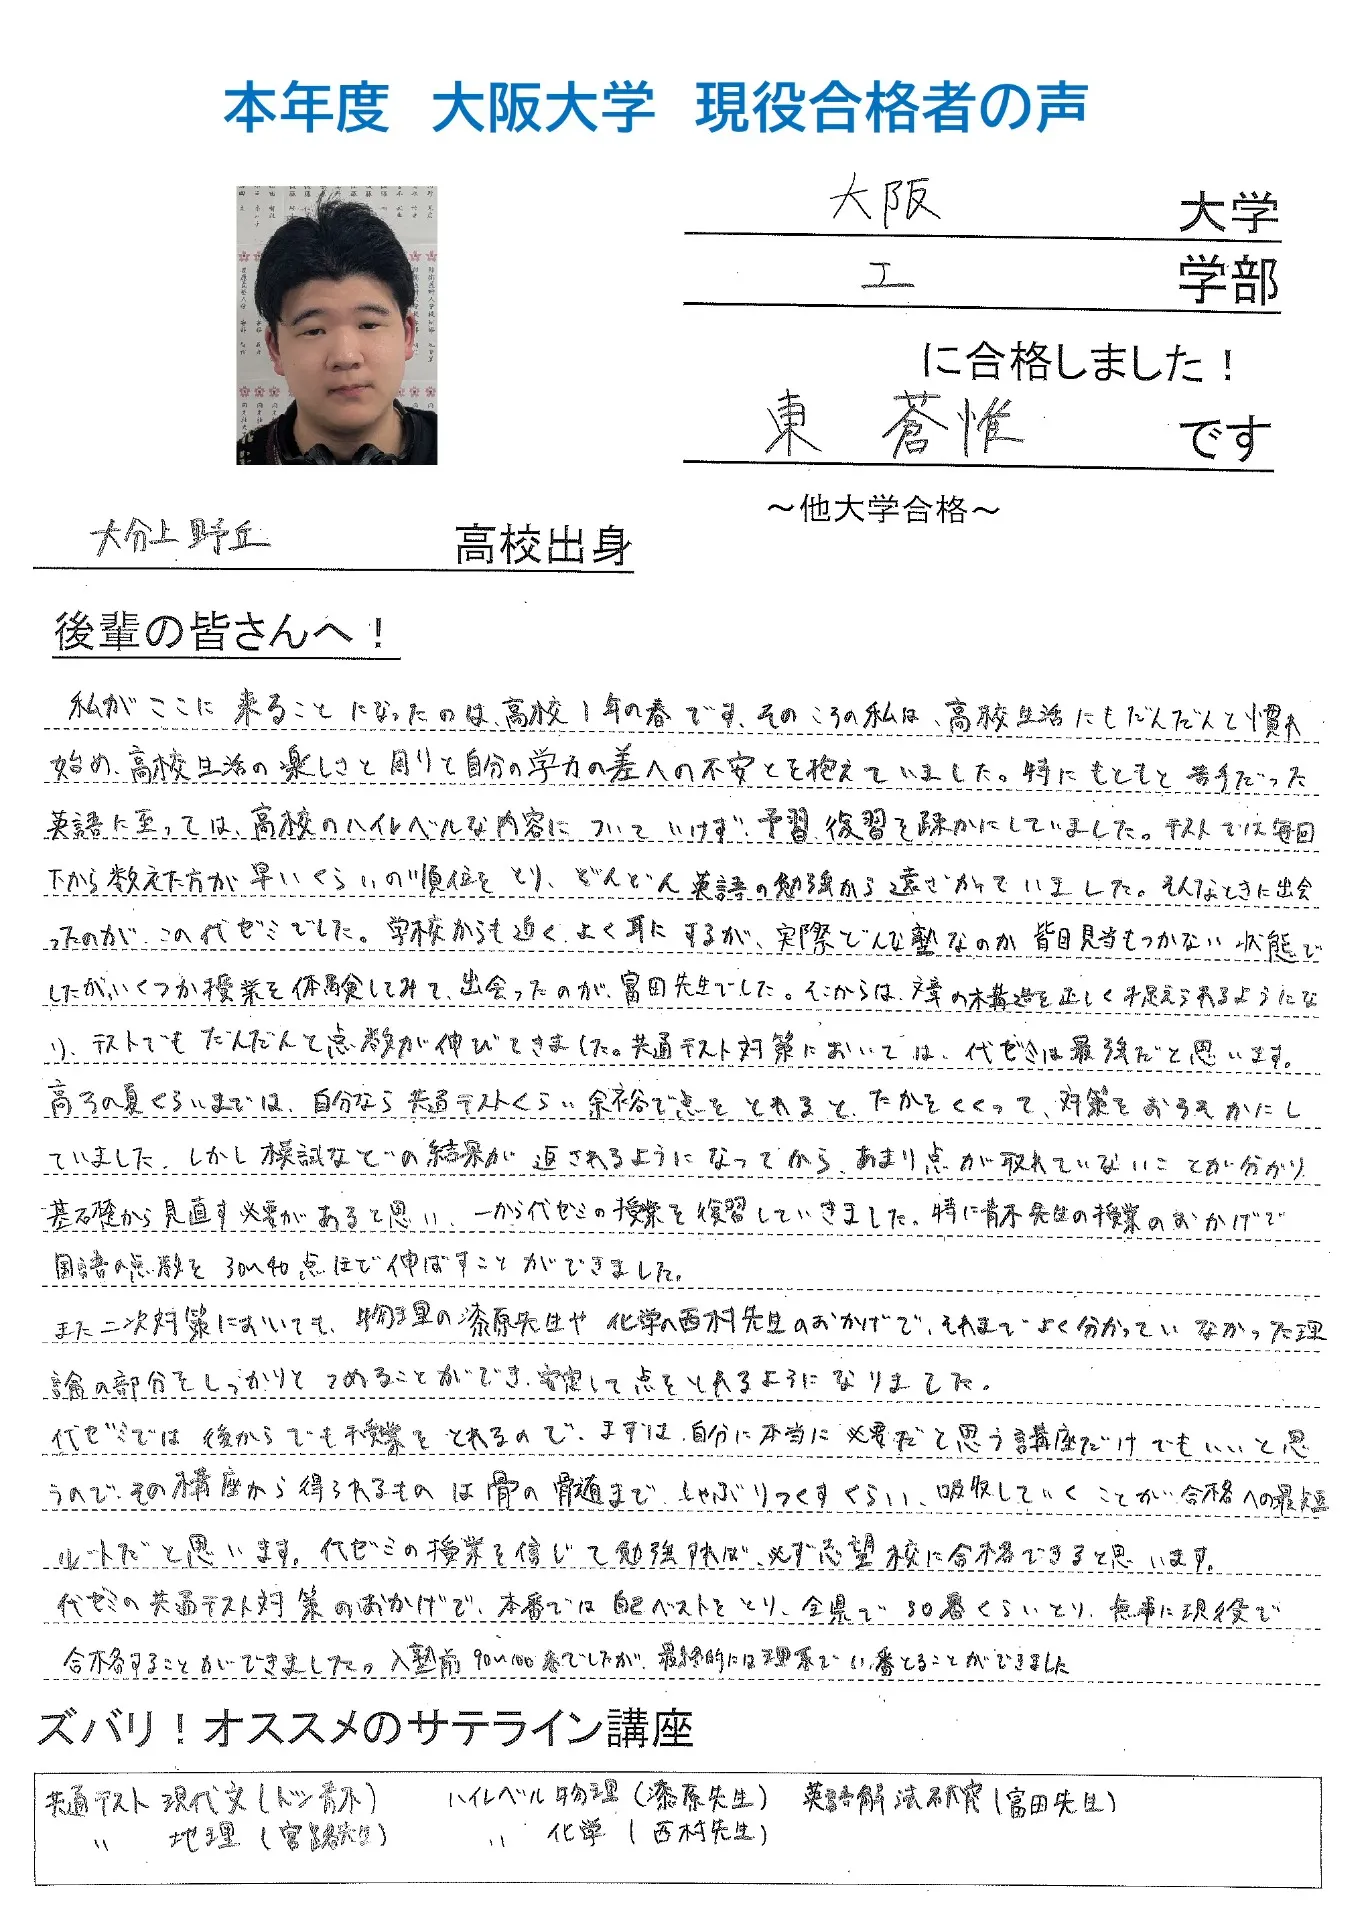 本年度 大阪大学 現役合格者の声
大阪 大学
工 学部
に合格しました！
東 蒼惟 です
～他大学合格～
大分上野丘 高校出身
後輩の皆さんへ！
私がここに来ることになったのは、高校1年の春です。そのころの私は、高校生活にもだんだんと慣れ
始め、高校生活の楽しさと周りと自分の学力の差への不安とを抱えていました。特にもともと苦手だった
英語に至っては、高校のハイレベルな内容についていけず、予習、復習を疎かにしていました。テストでは毎回
下から数えた方が早いくらいの順位をとり、どんどん英語の勉強から遠ざかっていました。そんなときに出会
ったのが、この代ゼミでした。学校からも近く、よく耳にするが、実際どんな塾なのか皆目見当もつかない状態で
したが、いくつか授業を体験してみて、出会ったのが、富田先生でした。そこからは、文章の構造を正しく捉えられるようにな
り、テストでもだんだんと点数が伸びてきました。共通テスト対策においては、代ゼミは最強だと思います。
高3の夏くらいまでは、自分なら共通テストくらい余裕で点をとれると、たかをくくって、対策をおろそかにし
ていました。しかし模試などの結果が返されるようになってから、あまり点が取れていないことが分かり
基礎から見直す必要があると思い、一から代ゼミの授業を復習していきました。特に青木先生の授業のおかげで
国語の点数を30〜40点ほど伸ばすことができました。
また二次対策においても、物理の漆原先生や化学の西村先生のおかげで、それまでよく分かっていなかった理
論の部分をしっかりとつめることができ、安定して点をとれるようになりました。
代ゼミでは後からでも授業をとれるので、まずは、自分に本当に必要だと思う講座だけでもいいと思
うので、その講座から得られるものは骨の骨髄まで、しゃぶりつくすくらい、吸収していくことが合格への最短
ルートだと思います。代ゼミの授業を信じて勉強すれば、必ず志望校に合格できると思います。
代ゼミの共通テスト対策のおかげで、本番では自己ベストをとり、全県で30番くらいとり、無事に現役で
合格することができました。入塾前90〜100番でしたが、最終的には理系で番とることができました
ズバリ！オススメのサテライン講座
共通テスト 現代文(ドン青木) ハイレベル物理(漆原先生) 英語解法研究(富田先生)
〃 地理(宮路先生) 〃 化学(西村先生)